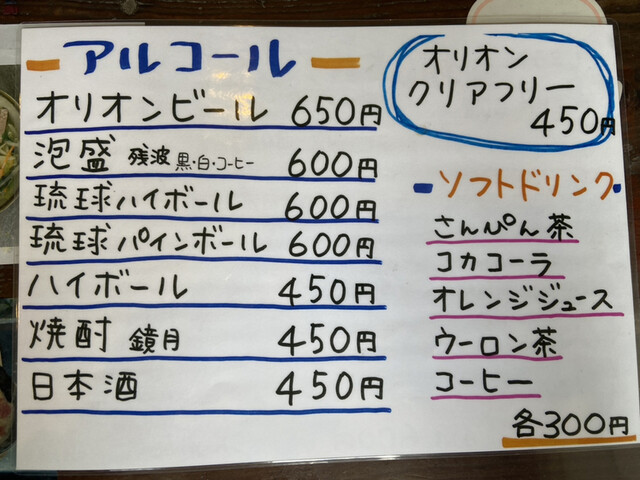 アルコール
オリオンビール 650円
泡盛 残波 黒・白・コーヒー 600円
琉球ハイボール 600円
琉球パインボール 600円
ハイボール 450円
焼酎 鏡月 450円
日本酒 450円
オリオン
クリアフリー
450円
ソフトドリンク
さんぴん茶
コカコーラ
オレンジジュース
ウーロン茶
コーヒー
各300円